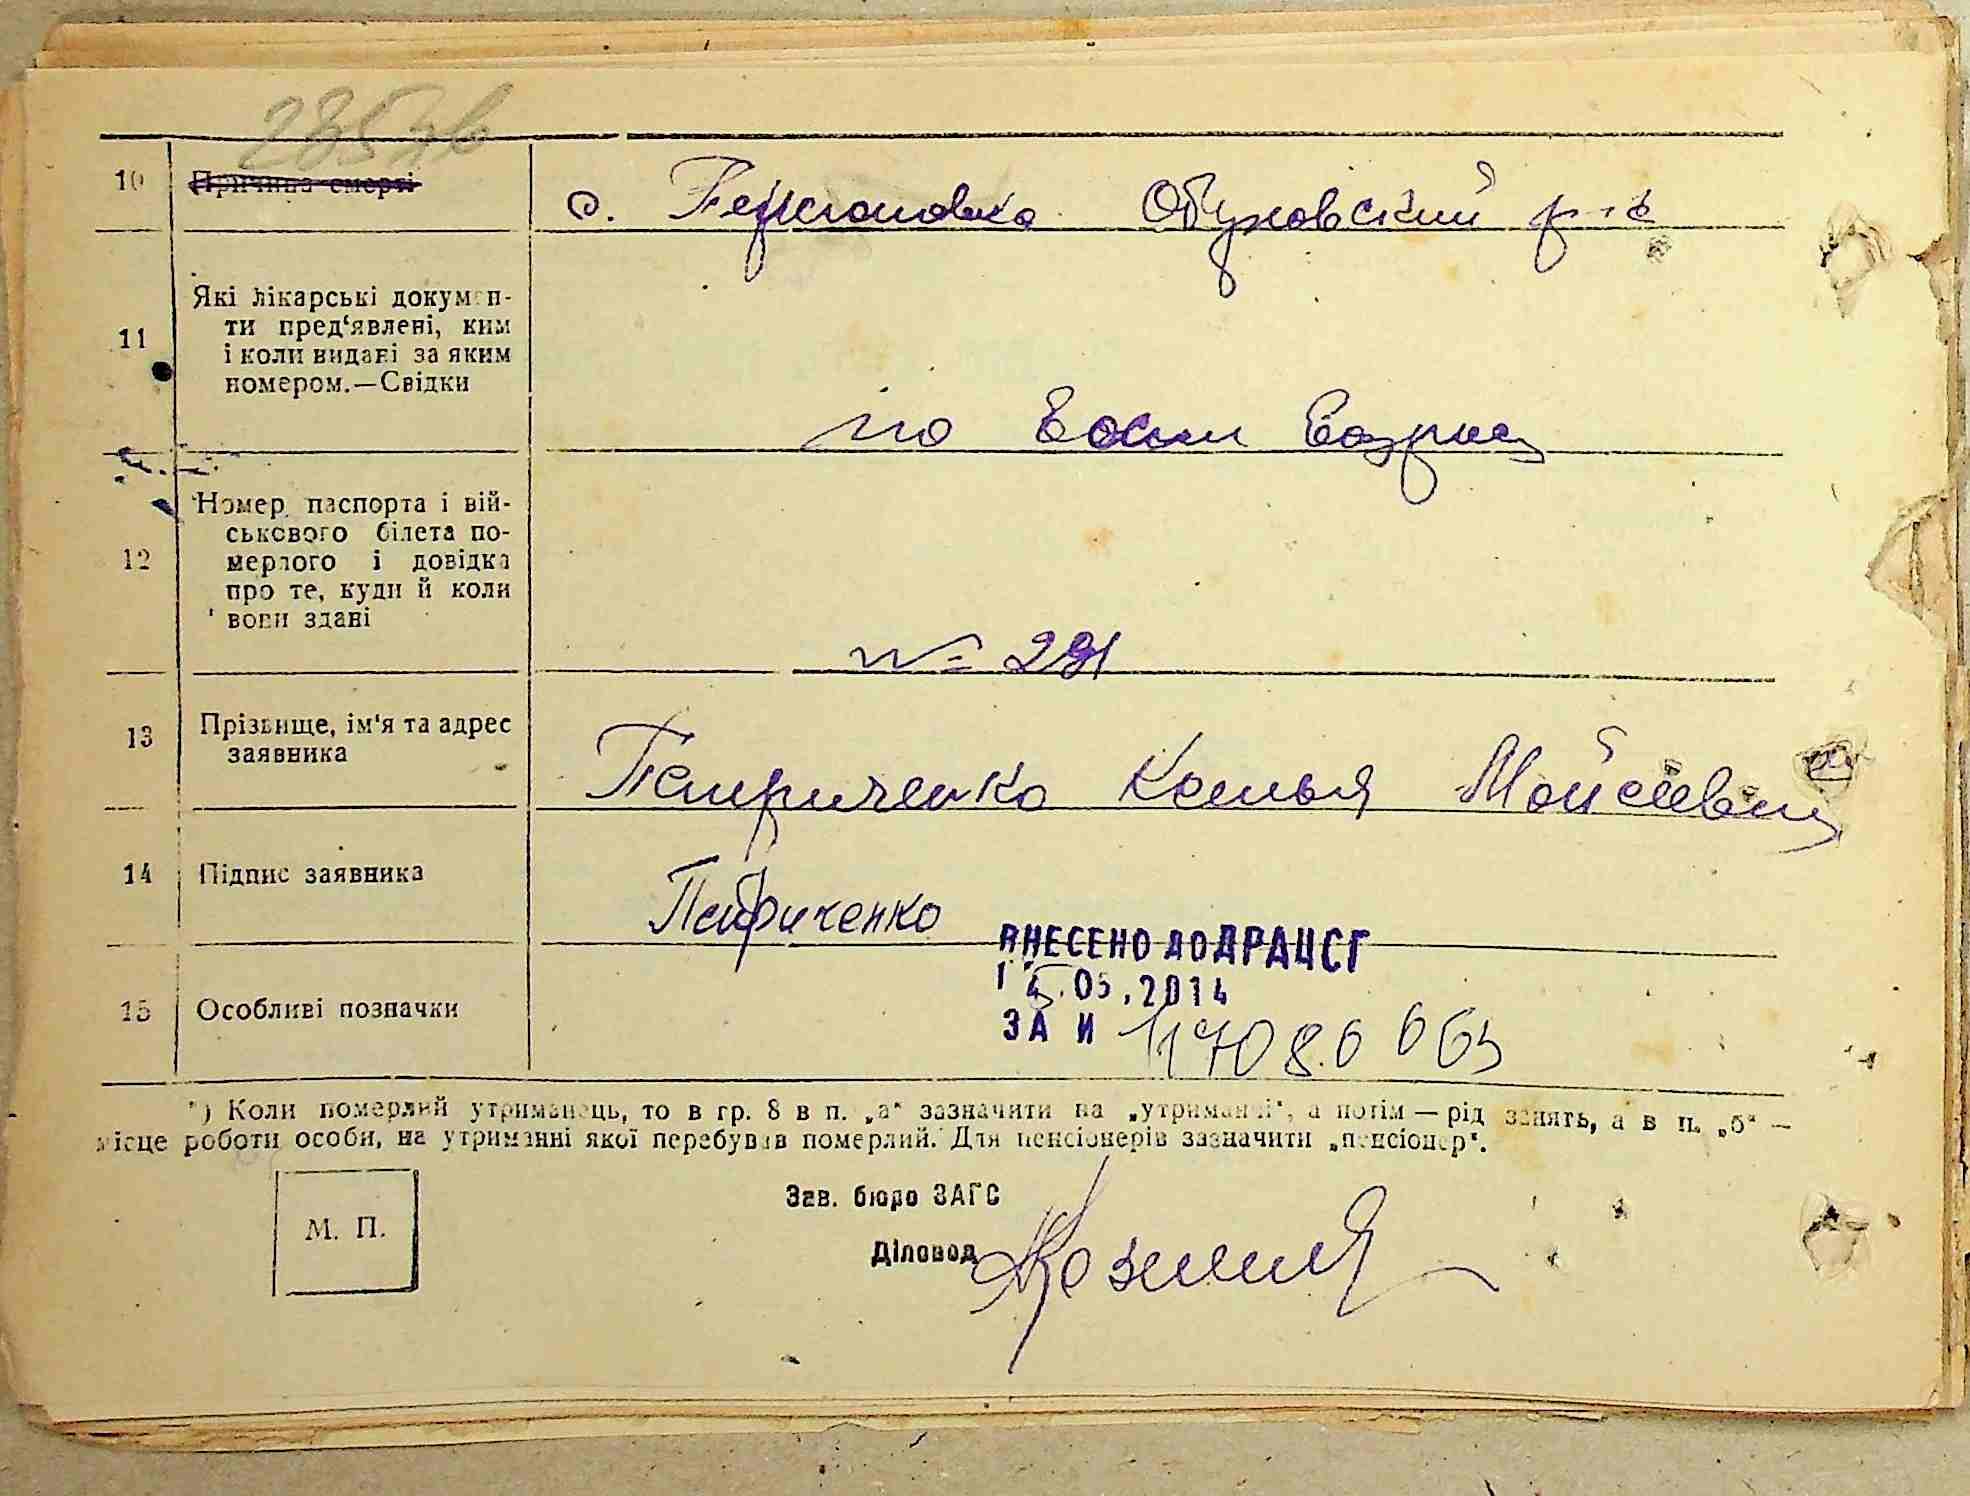 10 Причина смерті с. Германовка Обуховский р-н
11 Які лікарські докумен-
ти пред‘явлені, ким
і коли видані за яким
номером.—Свідки
по
12 Номер паспорта і вій-
ськового білета по-
мерлого і довідка
про те, куди й коли
вони здані
№ 291
13 Прізвище, ім‘я та адрес
заявника
Петриченко Мойсеевич
14 Підпис заявника Петриченко
ВНЕСЕНО ДО ДРАЦСГ
.05.2014
15 Особливі позначки
ЗА И
*) Коли померлий утриманець, то в гр. 8 в п. „а“ зазначити на „утриманні“, а потім — рід занять, а в п. „б“ —
місце роботи особи, на утриманні якої перебував померлий. Для пенсіонерів зазначити „пенсіонер“.
Зав. бюро ЗАГС
М. П.
Діловод